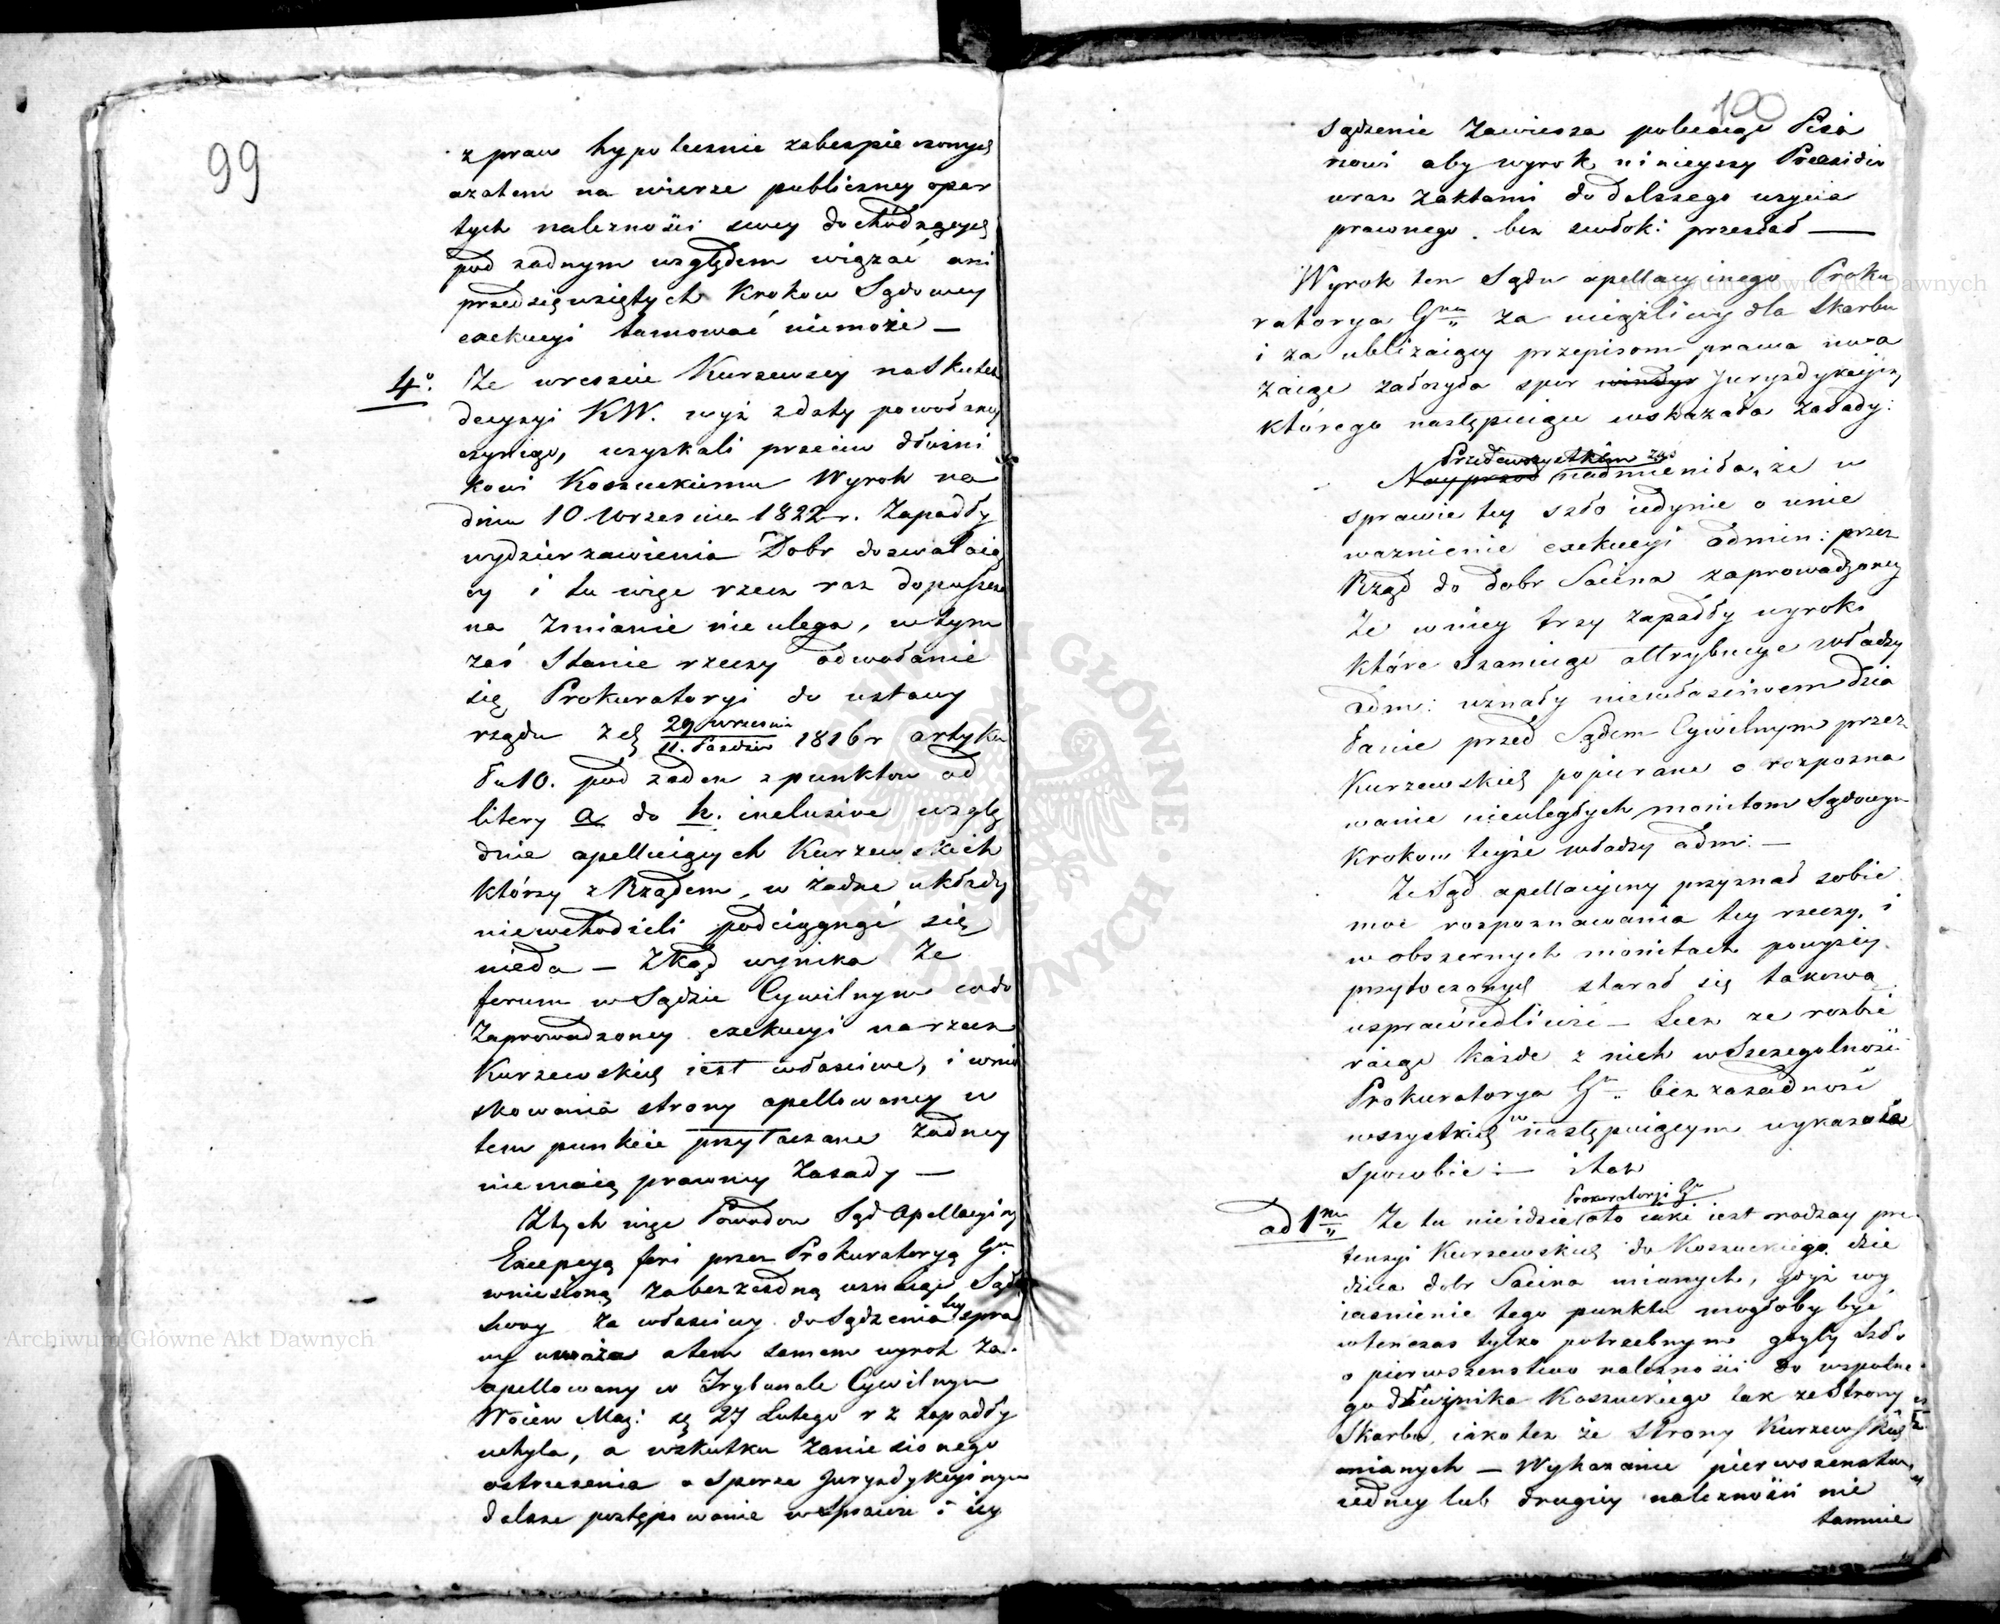 99
z praw hypotecznie zabezpieczonych
azatem na wierze publiczney opar
tych nalezności swey dochodzących
pod zadnym względem wiązać ani
przedsięwziętych Krokow Sądowey
exekucyi tamować niemoże —
4o. Ze wreszcie Kurzewscy naskutek
decyzyi KW. wyż z daty powołaney
czyniąc, uzyskali przeciw dłużni
kowi Koszuckiemu Wyrok na
dniu 10 Wrzesnia 1822 r. Zapadły
wydzierzawienia Dobr dozwalaią
cy i tu więc rzecz raz dopuszczo
na Zmianie nie ulega, w tym
zaś Stanie rzeczy odwołanie
się Prokuratoryi do ustawy
rządu z d. 29 wrzesnia / 11. Paździer 1816 r artyku
łu 10. pod zaden z punktow od
litery a do h. inclusive wzglę
dnie apelluiących Kurzewskich
którzy z Rządem w żadne układy
niewchodzili podciągnąć się
nieda — Zkąd wynika Ze
forum w Sądzie Cywilnym codo
Zaprowadzoney exekucyi na rzecz
Kurzewskich iest właściwe, i wnio
skowania strony apellowaney w
tem punkcie przytaczane Zadney
niemaią prawney Zasady —
Ztych więc Powodow Sąd Apellacyiny
Excepcyą fori przez Prokuratoryą Gn.
wniesioną Zabezzasdną uznaiąc Sąd
Swoy Za właściwy do Sądzenia tey spra
wy uważa atem samem wyrok Za
apellowany w Trybunale Cywilnym
Woiew Maz: d. 27 Lutego r z zapadły
uchyla, a wskutku Zaniesionego
ostrzeżenia o Sporze Juryzdykcyinym
dalsze postępowanie w Sprawie i iey
100
sądzenie Zawiesza polecaiąc Pisa
rzowi aby wyrok ninieyszy Prezidio
wraz Zaktami do dalszego uzycia
prawnego bez zwłoki przesłał —
Wyrok ten Sądu apellacyinego Proku
ratorya Gna za uciążliwy dla Skarbu
i za ubliżaiący przepisom prawa uwa
żaiąc założyła spor Juryzdykcyiny
którego następuiące wskazała Zasady:
Przedewszystkiem zaś
Nayprzod nadmieniła, że w
sprawie tey szło iedynie o unie
waznienie exekucyi admin: przez
Rząd do dobr Sacina zaprowadzoney
Ze w niey trzy zapadły wyroki
które Szanuiąc attrybucye władzy
adm: uznały niewłaściwem dzia
łanie przed Sądem Cywilnym przez
Kurzewskich popierane o rozpozna
wanie nieuległych monitom Sądowym
Krokow teyże władzy adm: —
Ze Sąd apellacyiny przyznał sobie
moc rozpoznawania tey rzeczy, i
w obszernych monitach powyżey
przytoczonych starał się takową
usprawiedliwić — Lecz ze rozbie
raiąc każde z nich w Szczegolności
Prokuratorya Gn bezzasadność
wszystkich w następuiącym wykazała
sposobie: — i tak
Prokuratoryi Gn
ad 1m Ze tu nieidzie oto iaki iest rodzay pre
tensyi Kurzewskich do Koszuckiego dzie
dzica dobr Sacina mianych, gdyż wy
iasnienie tego punktu mogłoby być
wtenczas tylko potrzebnym gdyby szło
o pierwszenstwo należności do wspolne
go dłużnika Koszuckiego tak ze Strony
Skarbu iako tez że Strony Kurzewskich
mianych — Wykazanie pierwszenstwa
iedney lub drugiey należności nie
tamuie
Archiwum Główne Akt Dawnych
Archiwum Główne Akt Dawnych
ARCHIWUM GŁÓWNE AKT DAWNYCH